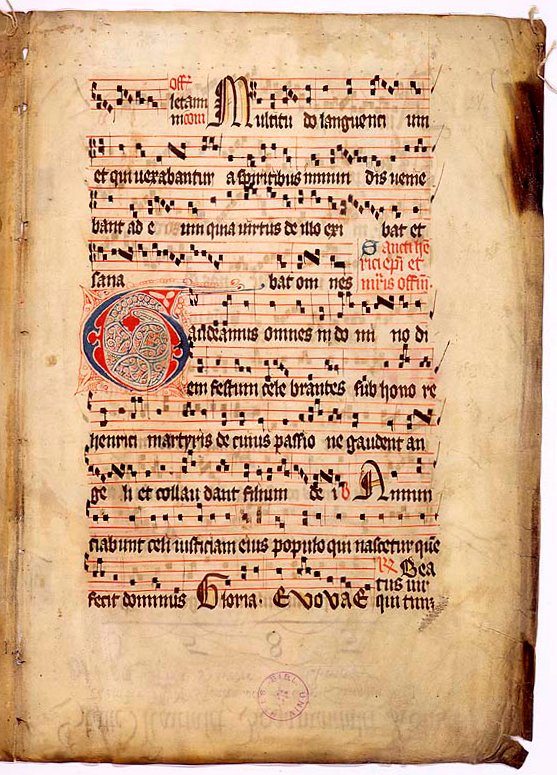 Multitu do languenti um
et qui uexabantur a spiritibus inmun dis venie
bant ad e um quia uirtus de illo exi bat et
sana bat om nes
Sancti he
rici epi et
Gaudeamus omnes in do mi no di
em festum cele brantes sub hono re
henrici martyris de cuius passio ne gaudent an
ge li et collau dant filium de i V Annun
ciabunt celi iusticiam eius populo qui nascetur que
fecit dominus Gloria. EVOVAE
Bea
tus uir
qui tim;